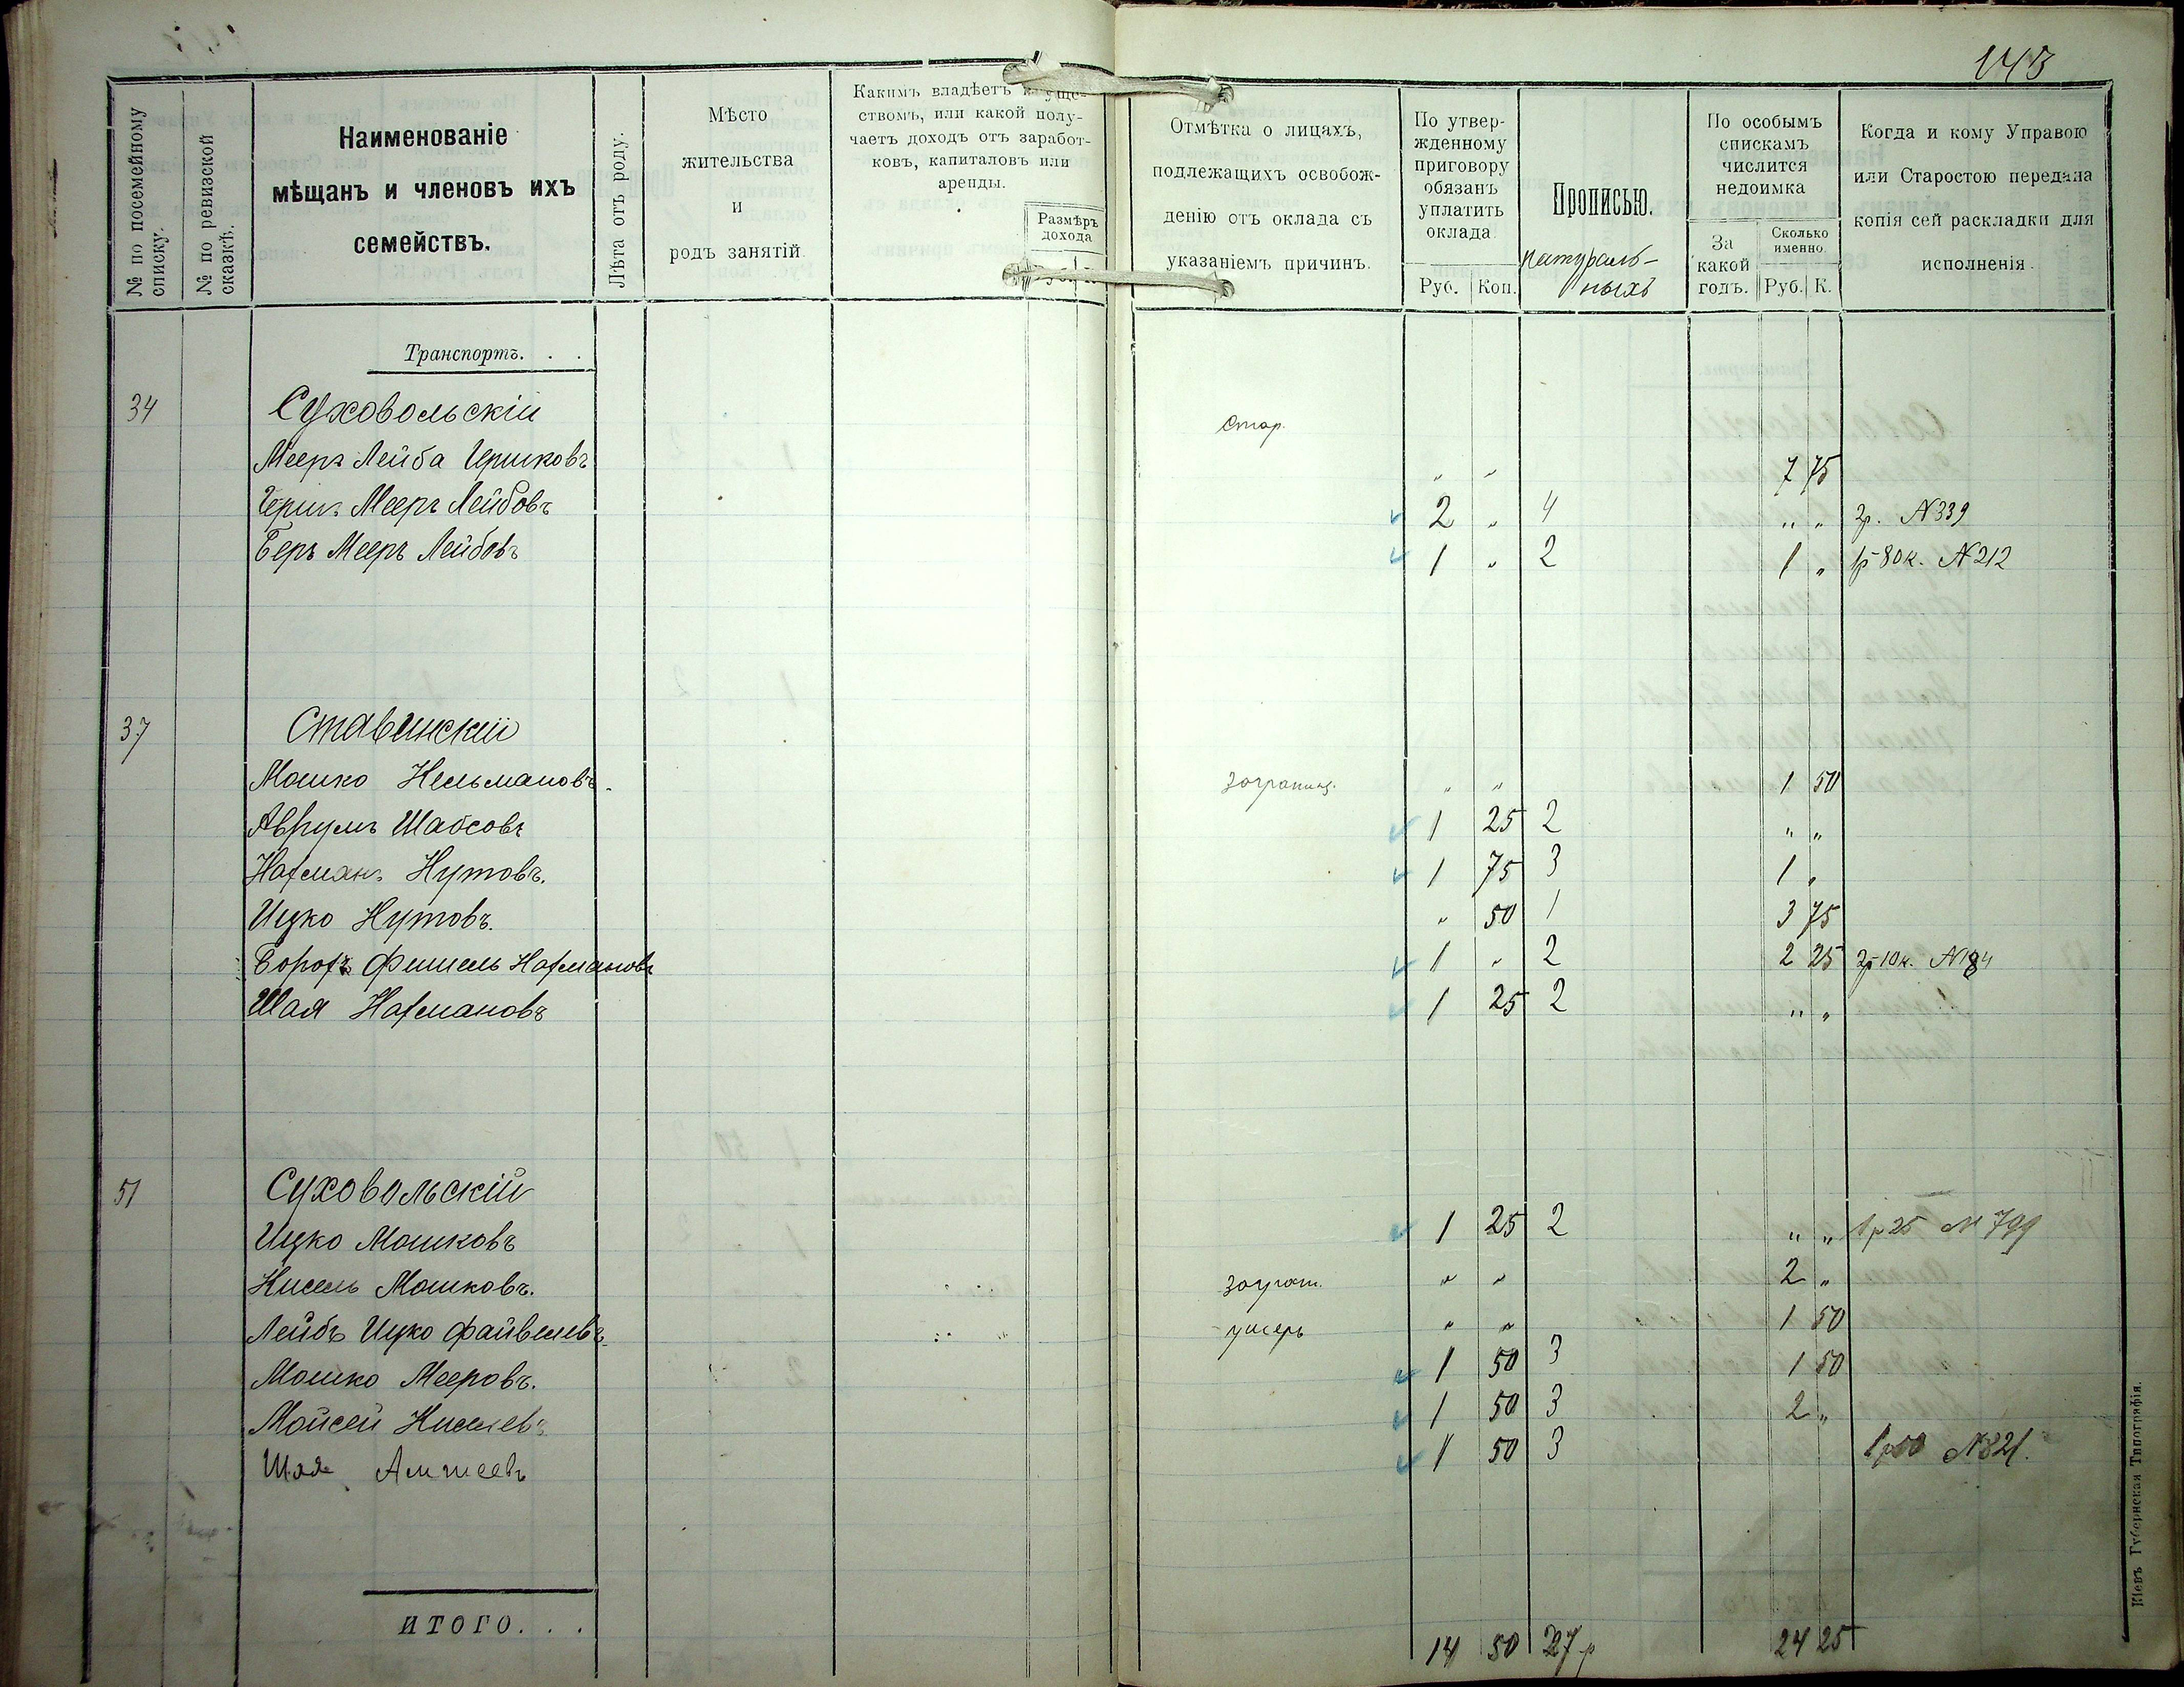 143
№ по посемейному списку.
№ по ревизской сказкѣ.
Наименованіе
мѣщанъ и членовъ ихъ
семействъ.
Лѣта отъ роду.
Мѣсто
жительства
и
родъ занятій.
Какимъ владѣетъ
ствомъ, или какой полу-
чаетъ доходъ отъ заработ-
ковъ, капиталовъ или
аренды.
Размѣръ
дохода
Отмѣтка о лицахъ,
подлежащихъ освобож-
денію отъ оклада съ
указаніемъ причинъ.
По утвер-
жденному
приговору
обязанъ
уплатить
оклада
Руб. Коп.
Прописью.
натураль-
ныхъ
По особымъ
спискамъ
числится
недоимка
За
какой
годъ.
Сколько
именно.
Руб. К.
Когда и кому Управою
или Старостою передана
копія сей раскладки для
исполненія.
Транспортъ. . .
34 Суховольскій
Мееръ Лейба Ицковъ Стар. " " 7 75
Мееръ Лейбовъ 2 " 4 " " 2р. №339
Беръ Мееръ Лейбовъ 1 " 2 1 " 1р 80к. №212
37 Ставинскій
Мошко Нельмановъ. заграниц. " " 1 50
Аврумъ Шабсовъ 1 25 2 " "
Нахманъ Нутовъ. 1 75 3 1 "
Ицко Нутовъ. " 50 1 3 75
Борохъ Фишель Нахмановъ 1 " 2 2 25 2р 10к. №184
Шая Нахмановъ 1 25 2 " "
51 Суховольскій
Ицко Мошковъ 1 25 2 " " 1р 25 № 799
Кисель Мошковъ. загран. " " 2 "
Лейбъ Ицко Файвелевъ умеръ " " 1 50
Мошко Мееровъ. 1 50 3 1 50
Мойсей Киселевъ 1 50 3 2 "
Шая 1 50 3 1р50 №821.
ИТОГО. . . 14 50 27 р 24 25
Кіевъ Губернская Типографія.